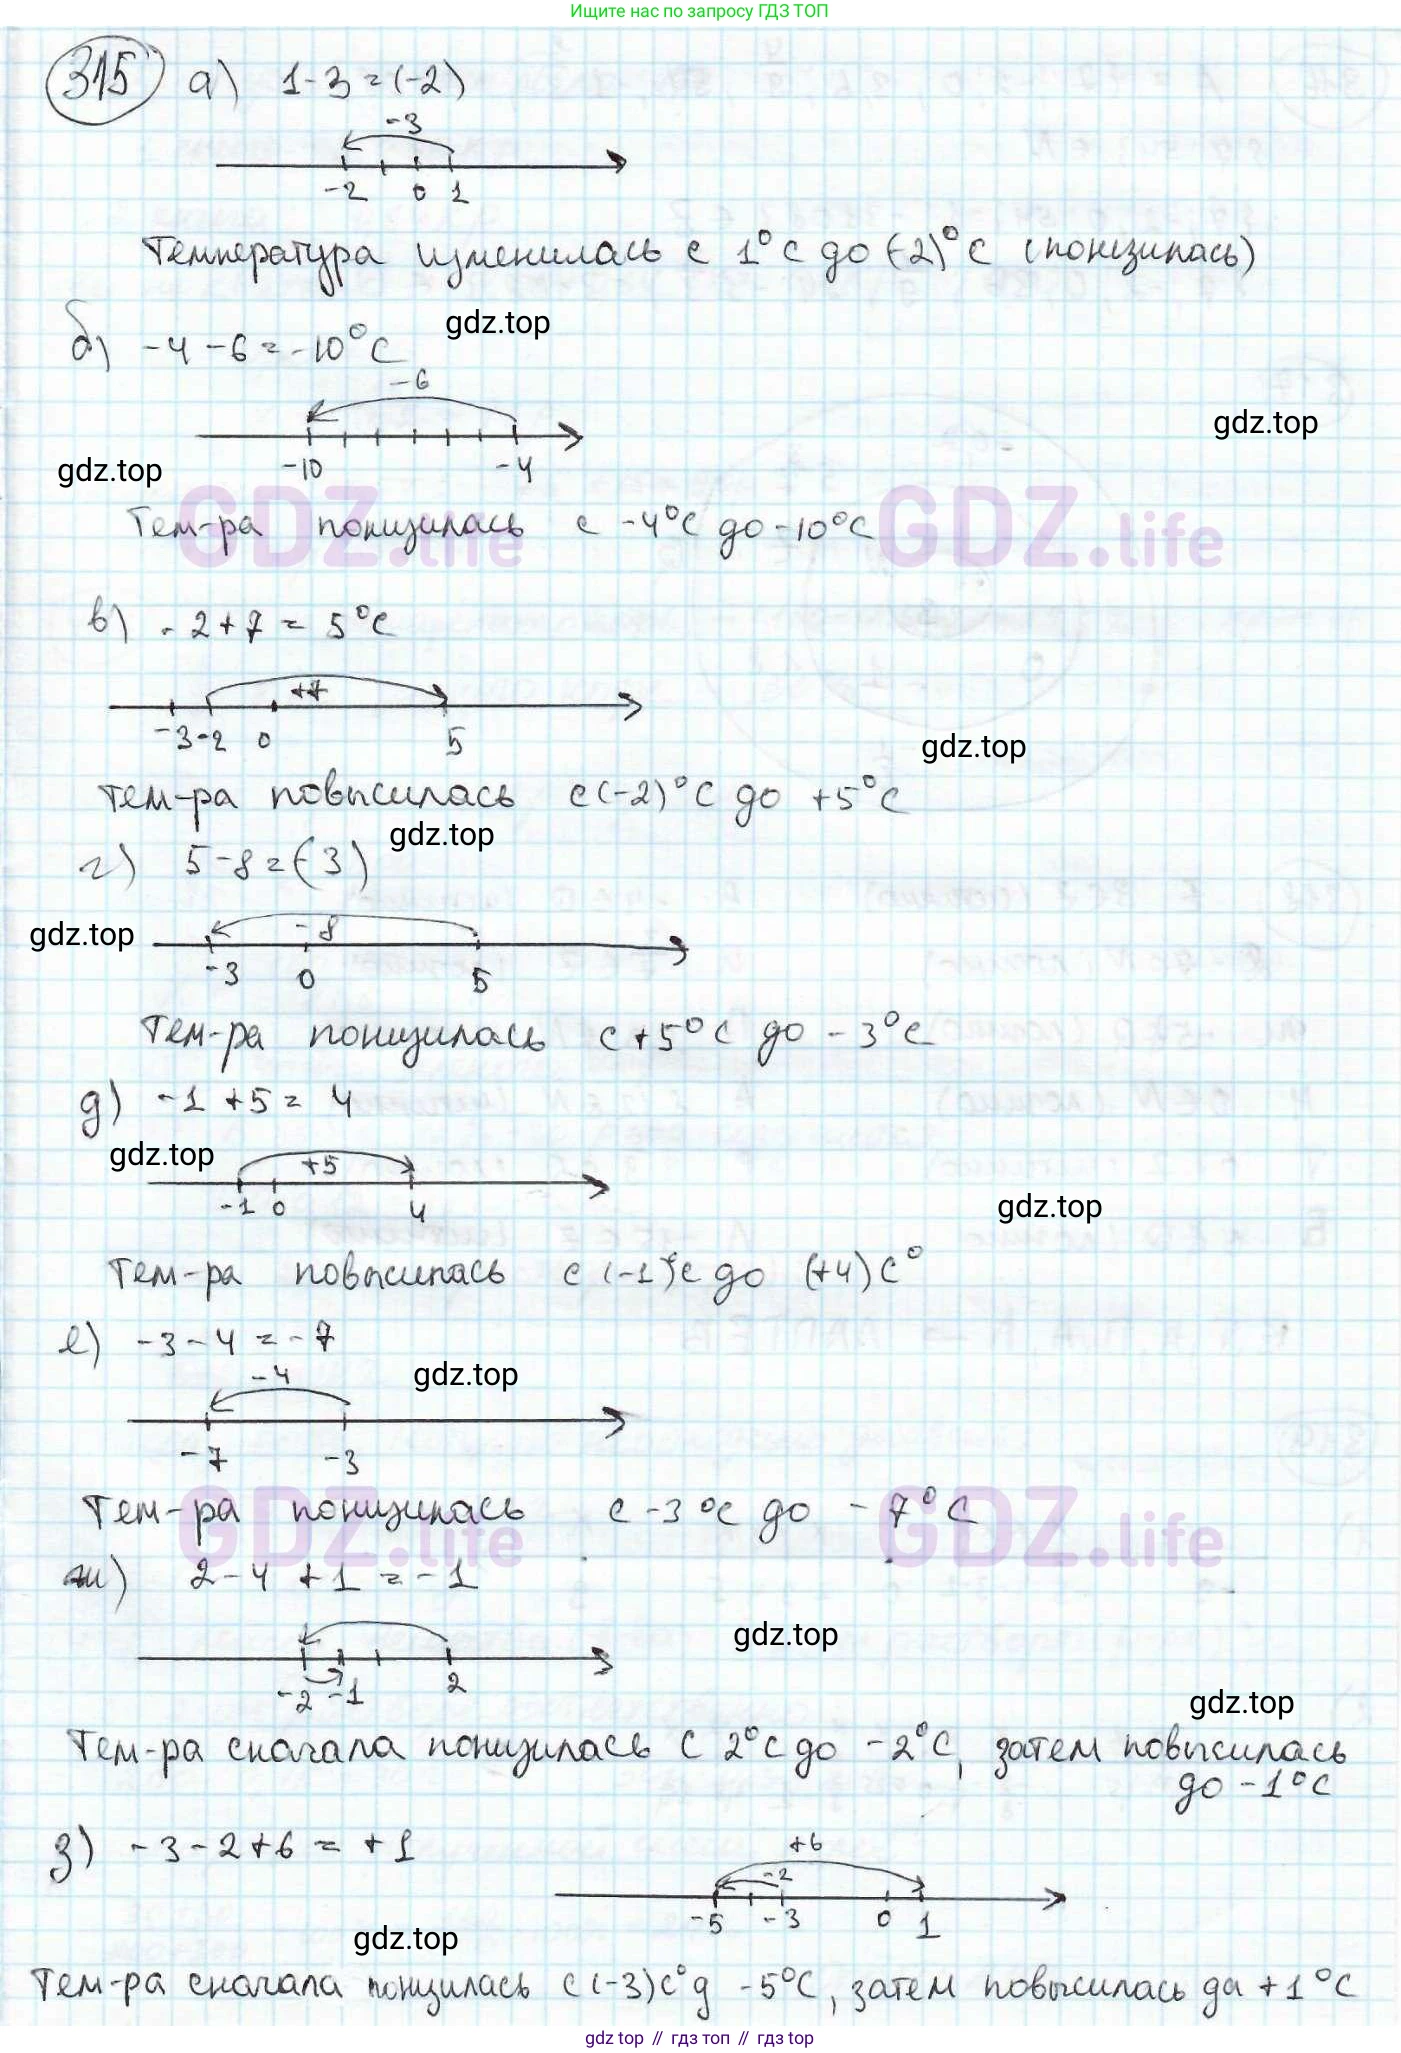 Ищите нас по запросу ГДЗ ТОП
315 а) 1-3=(-2)
-3
-2 0 1
Температура изменилась с 1°С до (-2)°С (понизилась)
gdz.top
б) -4-6=-10°С
-6
gdz.top
-10 -4
gdz.top
Тем-ра понизилась с -4°С до -10°С
GDZ.life GDZ.life
в) -2+7=5°С
+7
-3 -2 0 5
gdz.top
Тем-ра повысилась с (-2)°С до +5°С
gdz.top
г) 5-8=(-3)
gdz.top
-8
-3 0 5
Тем-ра понизилась с +5°С до -3°С
д) -1+5=4
gdz.top
+5
-1 0 4
gdz.top
Тем-ра повысилась с (-1)°С до (+4)С°
е) -3-4=-7
-4
gdz.top
-7 -3
Тем-ра понизилась с -3°С до -7°С
GDZ.life GDZ.life
ж) 2-4+1=-1
gdz.top
-2 -1 2
gdz.top
Тем-ра сначала понизилась с 2°С до -2°С, затем повысилась
до -1°С
з) -3-2+6=+1
+6
-2
-5 -3 0 1
gdz.top
Тем-ра сначала понизилась с (-3)С° д -5°С, затем повысилась да +1°С
gdz top // гдз топ // гдз top